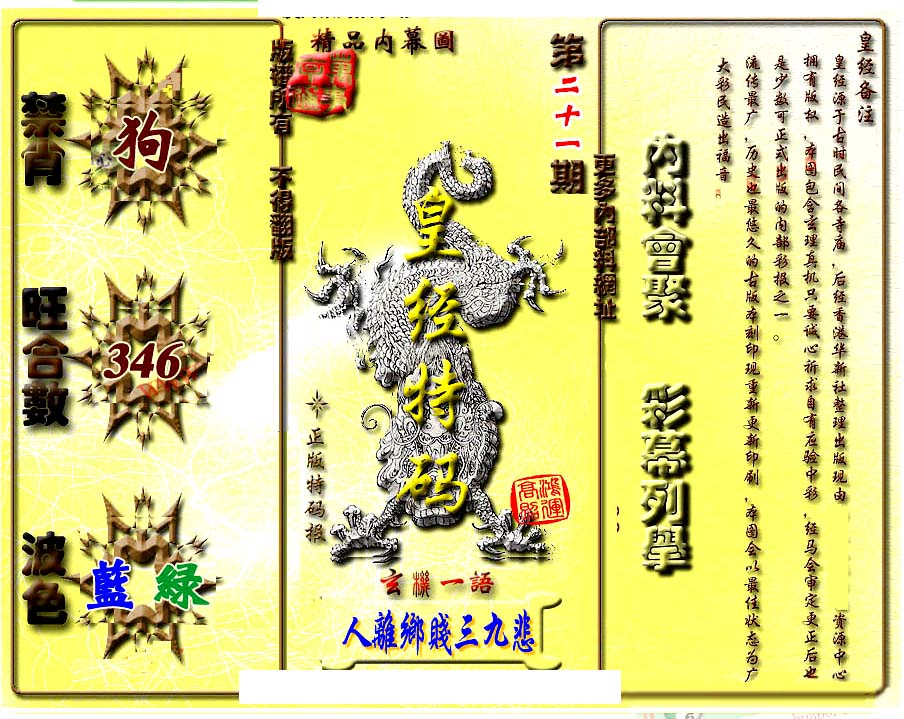 精品内幕圖
第二十一期
版權所有 不得翻版
更多內部料網址
禁肖
狗
旺合數
346
波色
藍 綠
皇经特码
正版特码报
鴻運高照
玄機一語
人離鄉賤三九悲
内料會聚 彩幕列舉
皇经备注
皇经源于古时民间各寺庙，后经香港华新社整理出版现由 资源中心
拥有版权，本图包含玄理真机只要诚心祈求自有应验中彩，经马会审定更正后也
是少数可正式出版的内部彩报之一。
流传最广，历史也最悠久的古版本刻印现重新更新印刷，本图会以最佳状态为广
大彩民造出福音